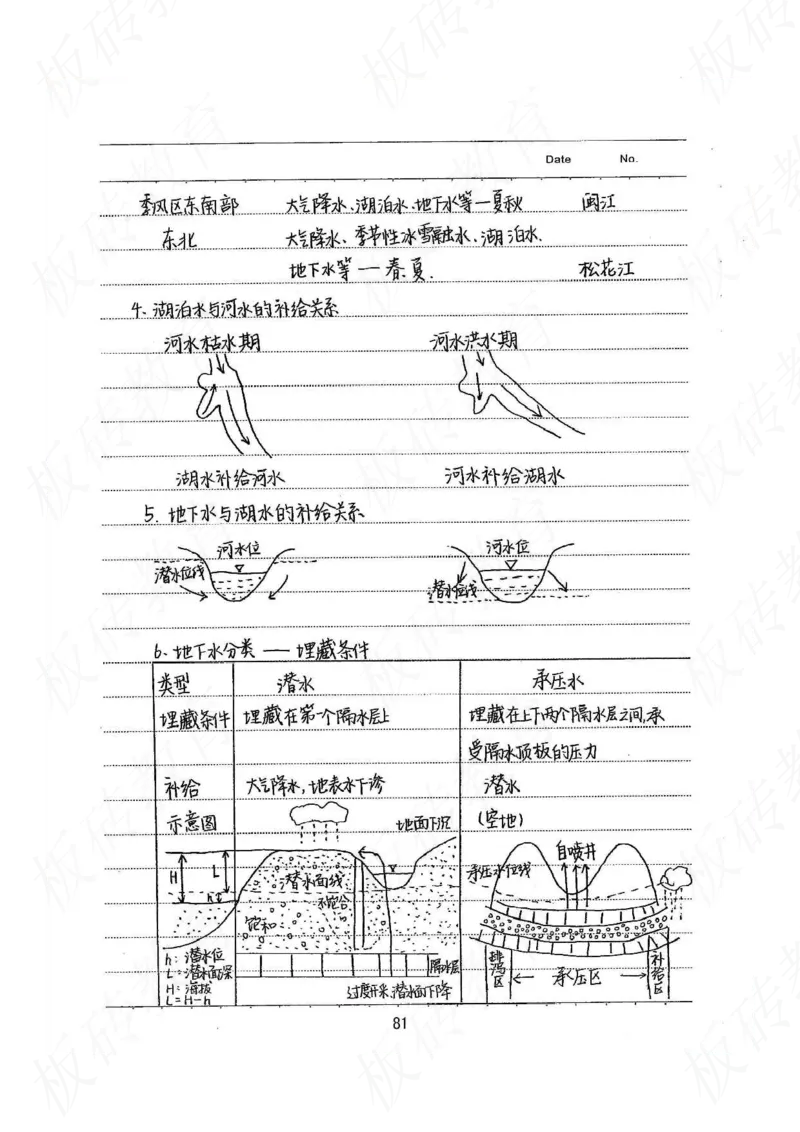 Date No.
季风区东南部 大气降水、湖泊水、地下水等一夏秋 闽江
东北 大气降水、季节性冰雪融水、湖泊水、
地下水等 一 春、夏. 松花江
4、湖泊水与河水的补给关系
河水枯水期 河水洪水期
湖水补给河水 河水补给湖水
5. 地下水与湖水的补给关系
河水位 河水位
潜水位线 潜水位线
6、地下水分类 —— 埋藏条件
类型 潜水 承压水
埋藏条件 埋藏在第一个隔水层上 埋藏在上下两个隔水层之间,承
受隔水顶板的压力
补给 大气降水,地表水下渗 潜水
示意图 地面下沉
自喷井
承压水位线
H L 潜水面线
h 不饱合
饱和
h：潜水位
L：潜水面深
H：海拔
L=H-h
隔水层
过度开采,潜水面下降
排泻区 ← 承压区 → 补给区
81
板砖教育